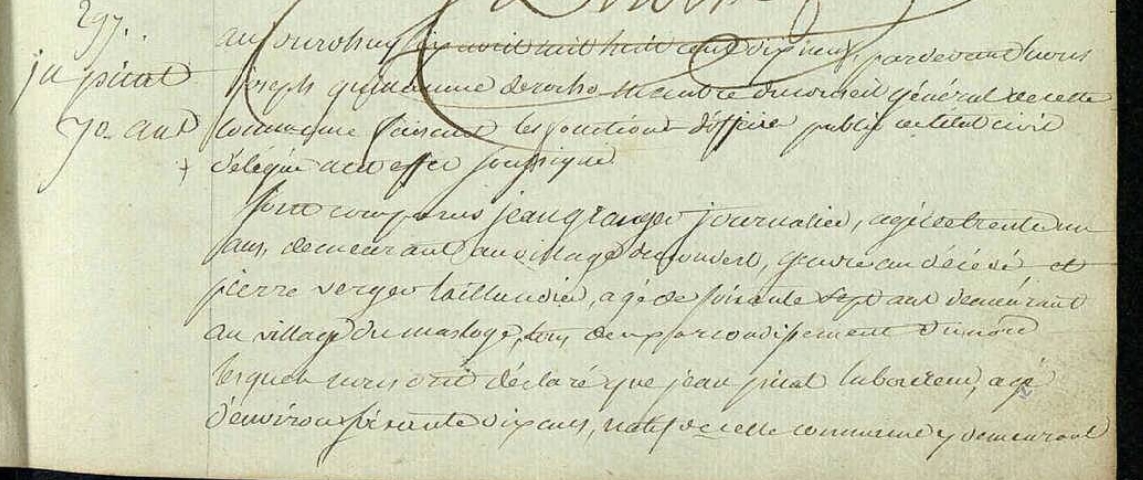 297.
jn pinat
70 ans
aujourdhuy six avril mil huit cent dix neuf, pardevant nous
joseph guillaume derocho membre du conseil général de cette
commune faisant les fonctions d'officier public de letat civil
délégué a cet effet soussigné
sont comparus jean granger journalier, agé de trente un
ans, demeurant au village du couvert, gendre au décédé et
pierre verger taillandier, agé de soixante sept ans demeurant
au village du masloge, tous deux parrondissement du nord
lesquels nous ont déclaré que jean pinat laboureur, agé
d'environ soixante dix ans, natif de cette commune y demeurant